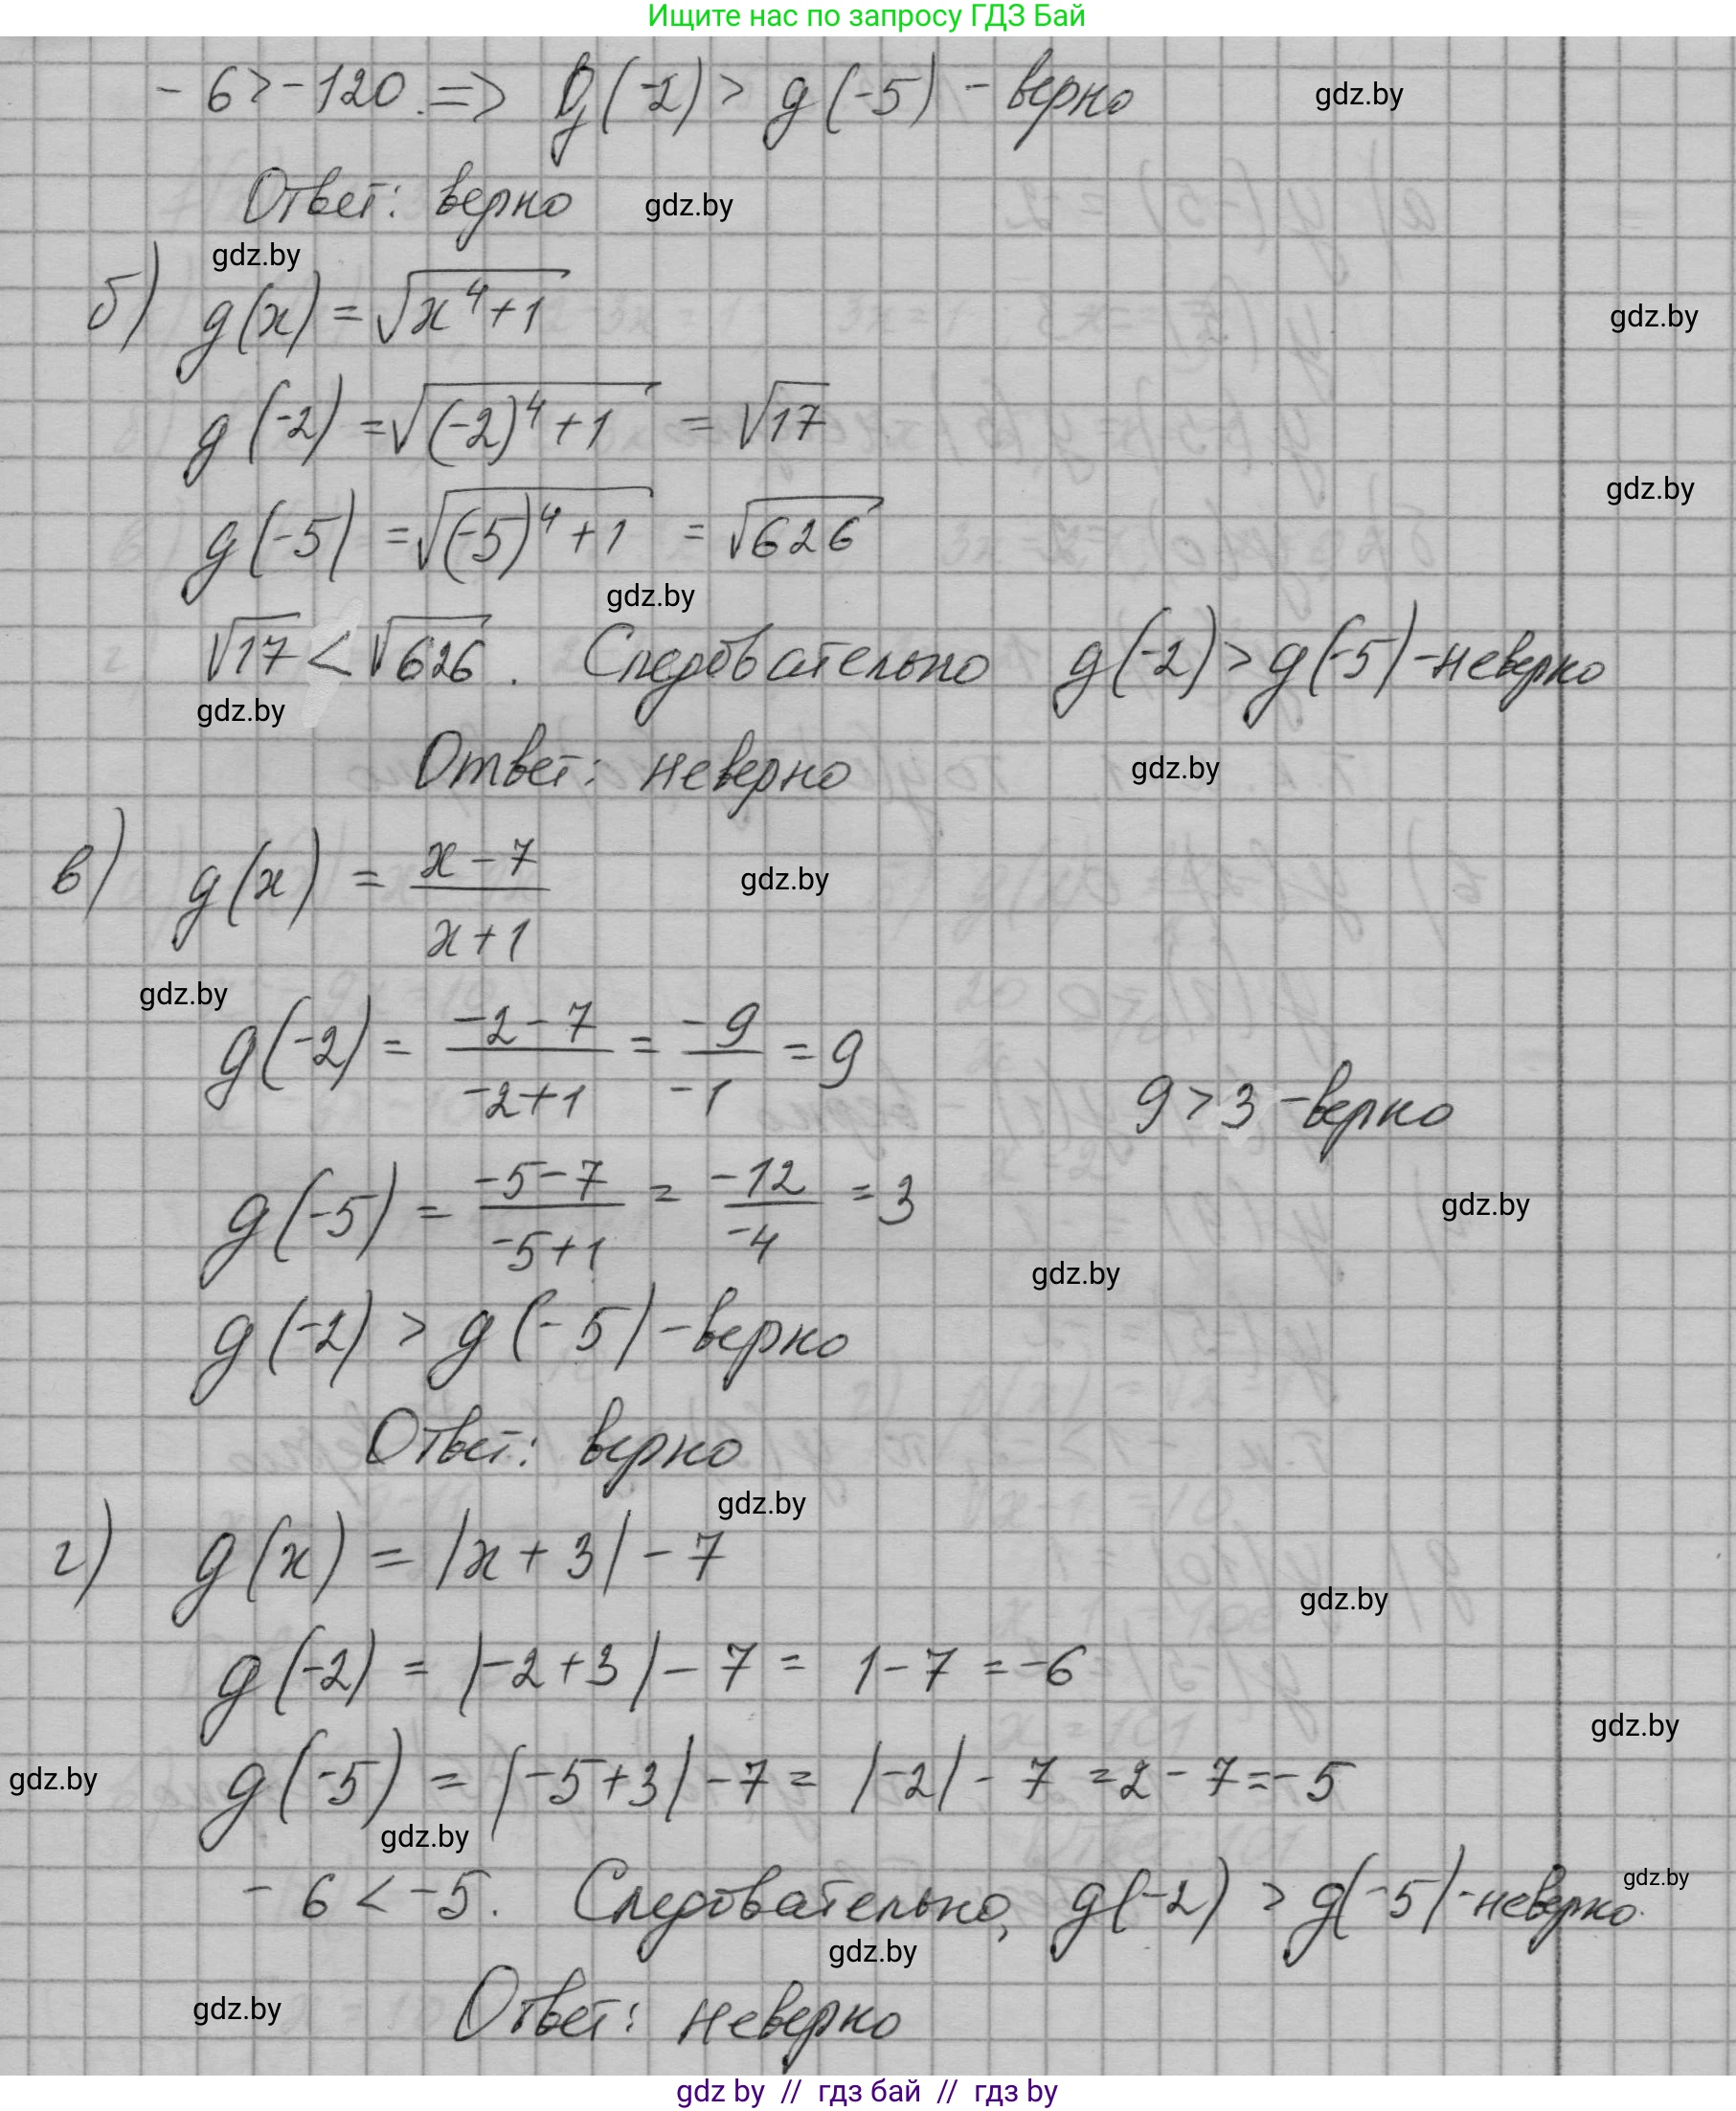 Ищите нас по запросу ГДЗ Бай
-6 > -120. => g(-2) > g(-5) - верно
gdz.by
Ответ: верно
gdz.by
gdz.by
б) g(x) = √(x⁴+1)
gdz.by
g(-2) = √((-2)⁴+1) = √17
gdz.by
g(-5) = √((-5)⁴+1) = √626
gdz.by
√17 < √626. Следовательно g(-2) > g(-5) - неверно
gdz.by
Ответ: неверно
gdz.by
в) g(x) = (x-7)/(x+1)
gdz.by
gdz.by
g(-2) = (-2-7)/(-2+1) = -9/-1 = 9
9 > 3 - верно
g(-5) = (-5-7)/(-5+1) = -12/-4 = 3
gdz.by
gdz.by
g(-2) > g(-5) - верно
Ответ: верно
gdz.by
г) g(x) = |x+3| - 7
gdz.by
g(-2) = |-2+3| - 7 = 1 - 7 = -6
gdz.by
gdz.by
g(-5) = |-5+3| - 7 = |-2| - 7 = 2 - 7 = -5
gdz.by
gdz.by
-6 < -5. Следовательно, g(-2) > g(-5) - неверно.
gdz.by
gdz.by
Ответ: неверно
gdz by // гдз бай // гдз by